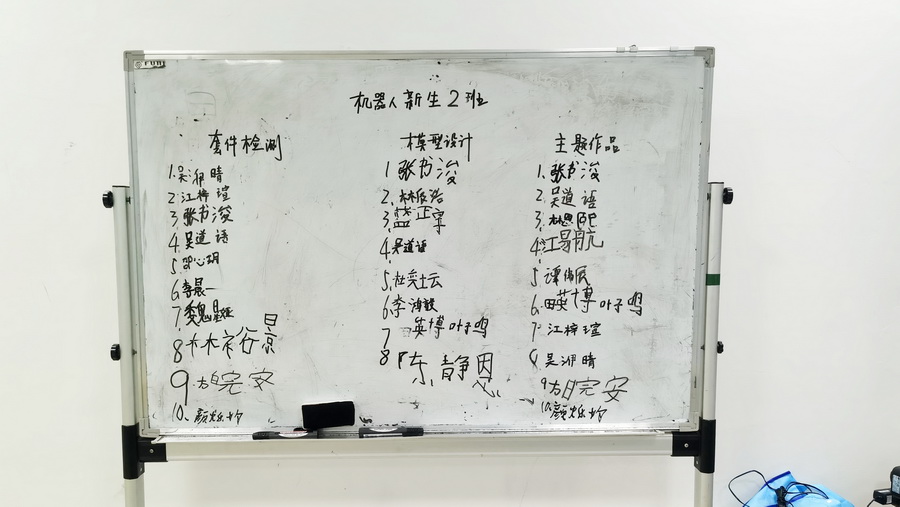 机器人新生2班
套件检测
1.吴湘晴
2.江梓瑄
3.张书浚
4.吴道语
5.
6.李晨一
7.魏
8林裕景
9.方皖安
10.颜烁圴
模型设计
1张书浚
2.林辰浩
3.蓝正宇
4.吴道语
5.杜奕士云
6.李鸿毅
7田英博 叶子鸣
8陈静恩
主题作品
1.张书浚
2.吴道语
3.林思
4.江易航
5.谭
6.田英博 叶子鸣
7.江梓瑄
8.吴湘晴
9方皖安
10.颜烁圴